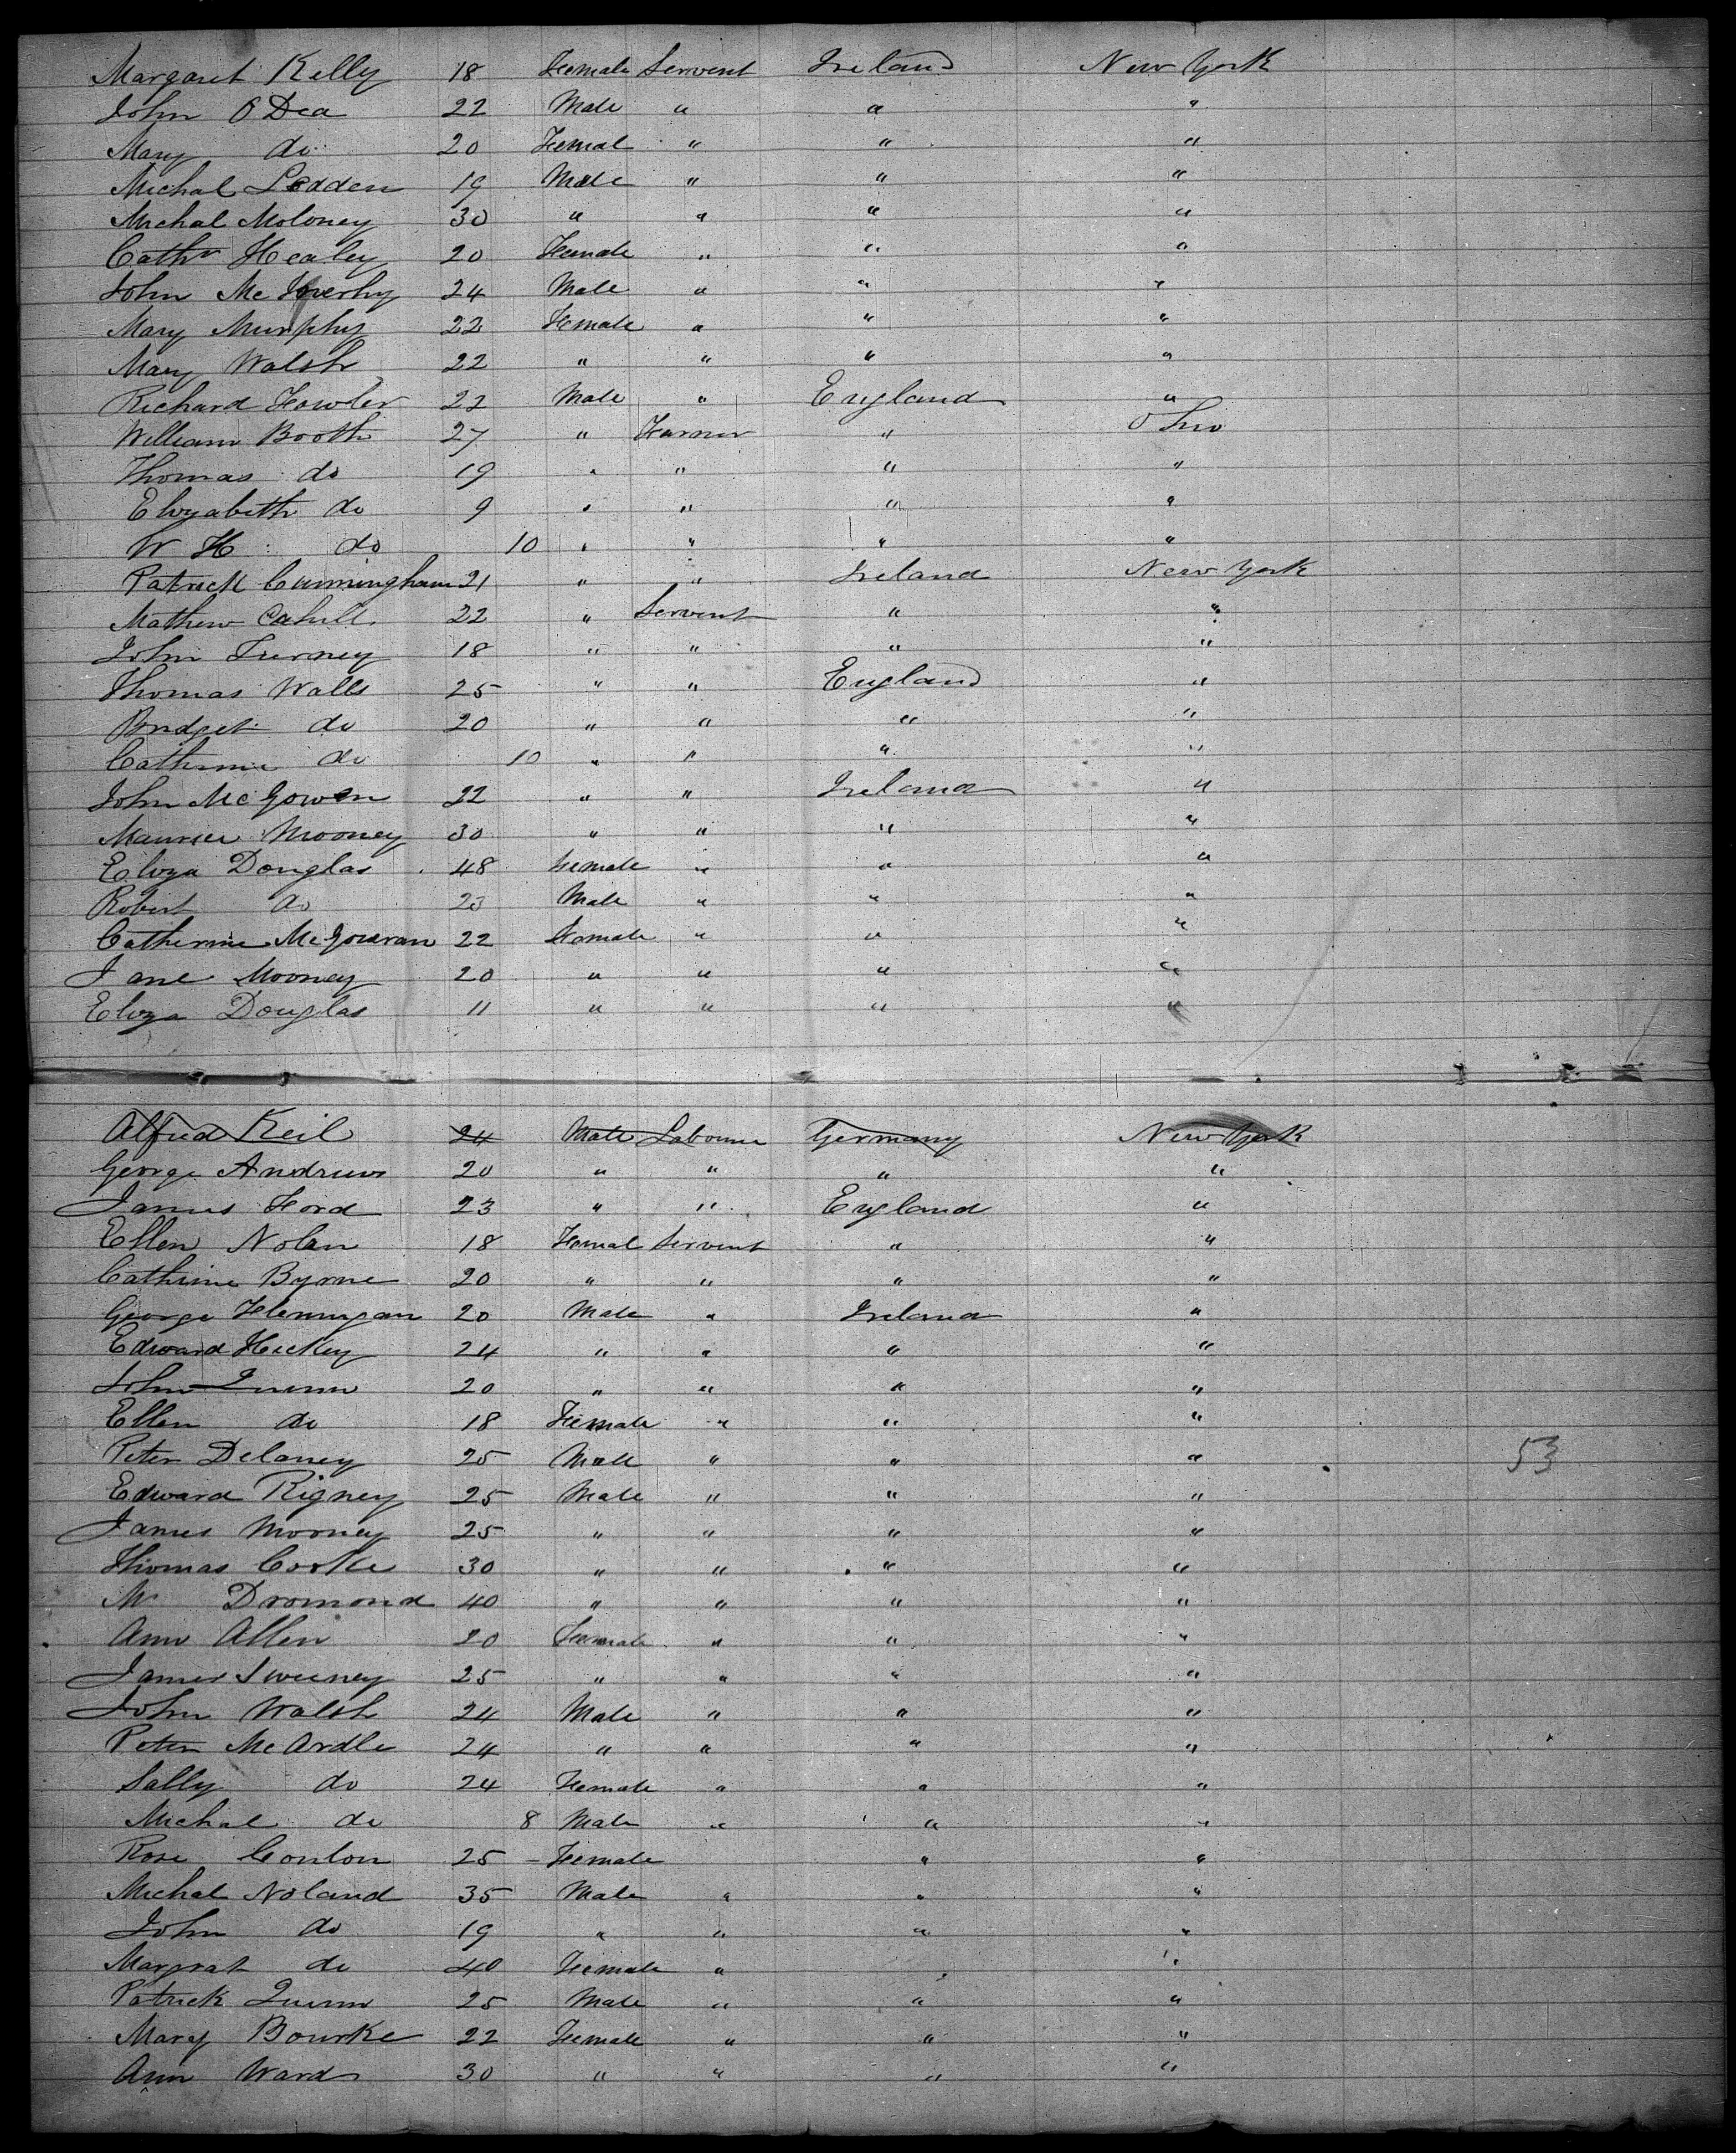 Margaret Kelly 18 Female Servent Ireland New York
John O Dea 22 Male " " "
Mary do 20 Femal " " "
Michal Ledden 19 Male " " "
Michal Moloney 30 " " " "
Cathr Healey 20 Female " " "
John Mc 24 Male " " "
Mary Murphy 22 Female " " "
Mary Walsh 22 " " " "
Richard Fowler 22 Male " England "
William Booth 27 " Farmer " Ohio
Thomas do 19 " " " "
Elizabeth do 9 " " " "
W H do 10 " " " "
Patrick Cunningham 21 " " Ireland New York
Mathew Cahill 22 " Servent " "
John Turney 18 " " " "
Thomas Walls 25 " " England "
Bridget do 20 " " " "
Catherine do 10 " " " "
John McGowen 22 " " Ireland "
Maurice Mooney 30 " " " "
Eliza Douglas 48 Female " " "
Robert do 23 Male " " "
Catherine McGowran 22 Female " " "
Jane Mooney 20 " " " "
Eliza Douglas 11 " " " "
Alfred Keil 24 Male Labourer Germany New York
George Andrews 20 " " " "
James Ford 23 " " England "
Ellen Nolan 18 Femal Servent " "
Catherine Byrne 20 " " " "
George 20 Male " Ireland "
Edward Hickey 24 " " " "
John Quinn 20 " " " "
Ellen do 18 Female " " "
Peter Delaney 25 Male " " " 53
Edward Rigney 25 Male " " "
James Mooney 25 " " " "
Thomas Cooke 30 " " " "
Mr Dromond 40 " " " "
Ann Allen 20 Female " " "
James Sweeney 25 " " " "
John Walsh 24 Male " " "
Peter McArdle 24 " " " "
Sally do 24 Female " " "
Michal do 8 Male " " "
Rose Conlon 25 - Female " "
Michal Noland 35 Male " " "
John do 19 " " " "
Margrat do 40 Female " " "
Patrick Quinn 25 Male " " "
Mary Bourke 22 Female " " "
Ann Ward 30 " " " "